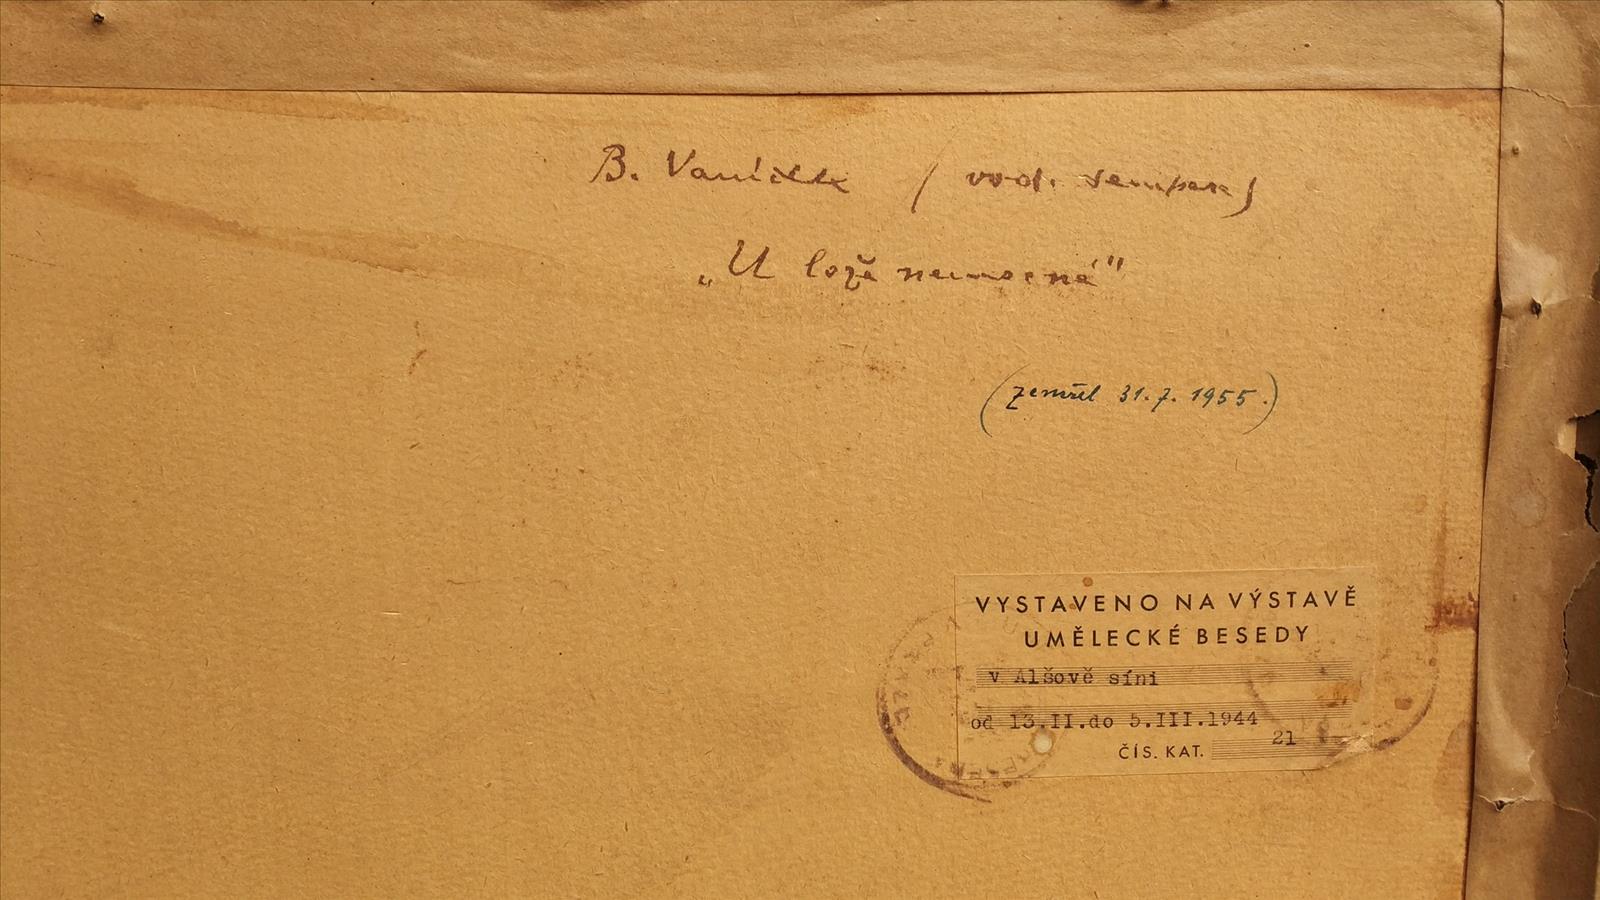 B. Vaníček (vod. tempera)
„U lože nemocné"
(zemřel 31.7.1955.)
VYSTAVENO NA VÝSTAVĚ
UMĚLECKÉ BESEDY
v Alšově síni
od 13.II.do 5.III.1944
ČÍS. KAT. 21